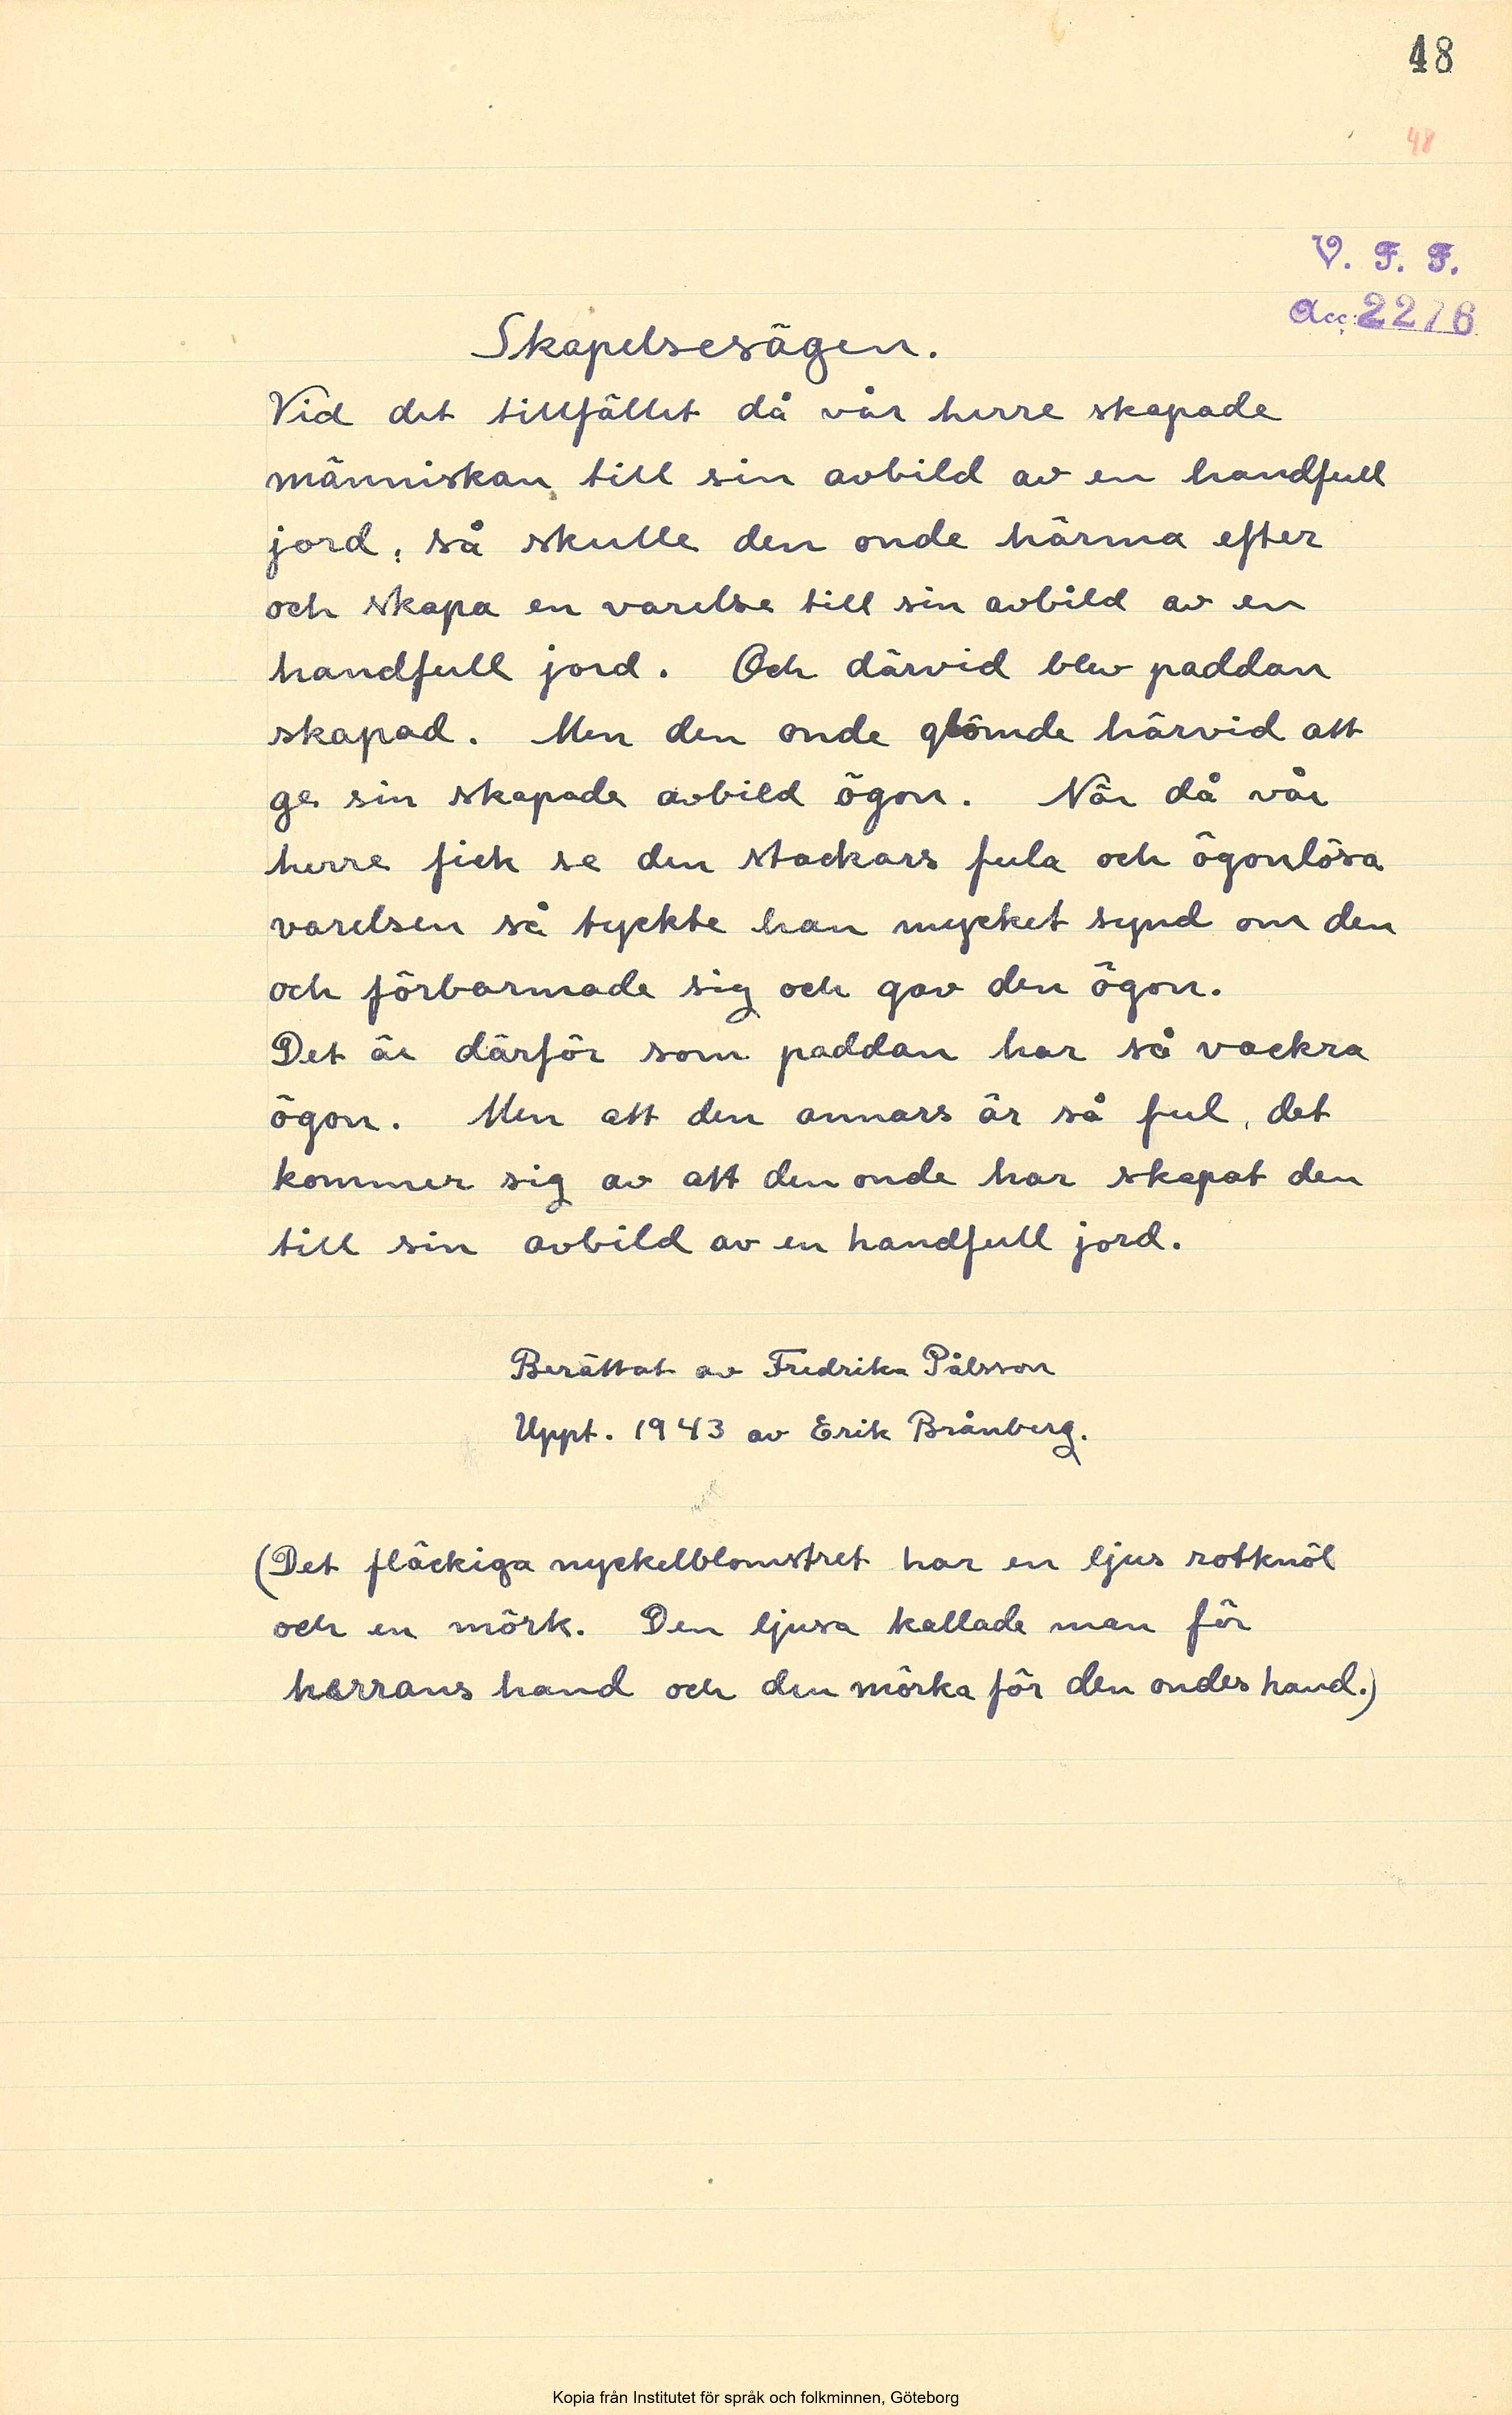 48
48
V. F. F.
Acc. 2276
Skapelsesägen.
Vid det tillfället då vår herre skapade
människan till sin avbild av en handfull
jord, så skulle den onde härma efter
och skapa en varelse till sin avbild av en
handfull jord. Och därvid blev paddan
skapad. Men den onde glömde härvid att
ge sin skapade avbild ögon. När då vår
herre fick se den stackars fula och ögonlösa
varelsen så tyckte han mycket synd om den
och förbarmade sig och gav den ögon.
Det är därför som paddan har så vackra
ögon. Men att den annars är så ful, det
kommer sig av att den onde har skapat den
till sin avbild av en handfull jord.
Berättat av Fredrika Pålsson
Uppt. 1943 av Erik Brånberg.
(Det fläckiga nyckelblomstret har en ljus rotknöl
och en mörk. Den ljusa kallade man för
herrans hand och den mörka för den ondes hand.)
Kopia från Institutet för språk och folkminnen, Göteborg